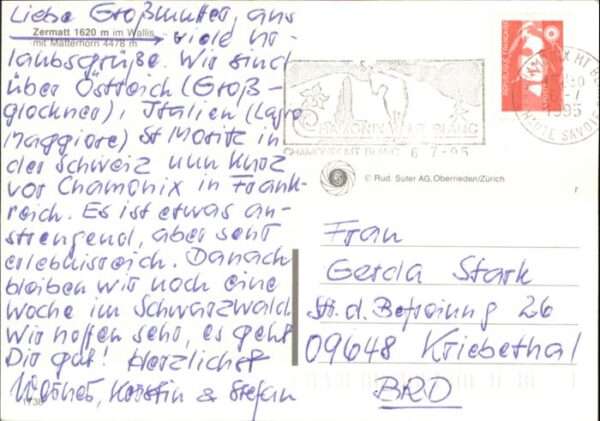 Liebe Großmutter, aus
Zermatt 1620 m im Wallis
mit Matterhorn 4478 m
viele Ur-
laubsgrüße. Wir sind
über Östreich (Groß-
glockner), Italien (Lago
Maggiore) St Moritz in
der Schweiz nun kurz
vor Chamonix in Frank-
reich. Es ist etwas an-
strengend, aber sehr
erlebnisreich. Danach
bleiben wir noch eine
Woche im Schwarzwald
Wir hoffen sehr, es geht
Dir gut! Herzlichst
Kerstin & Stefan
CHAMONIX MONT BLANC
CHAMONIX MT BLANC 6-7-95
1995
HAUTE SAVOIE
© Rud. Suter AG, Oberrieden/Zürich
Frau
Gerda Stark
Str. d. Befreiung 26
09648 Kriebethal
BRD